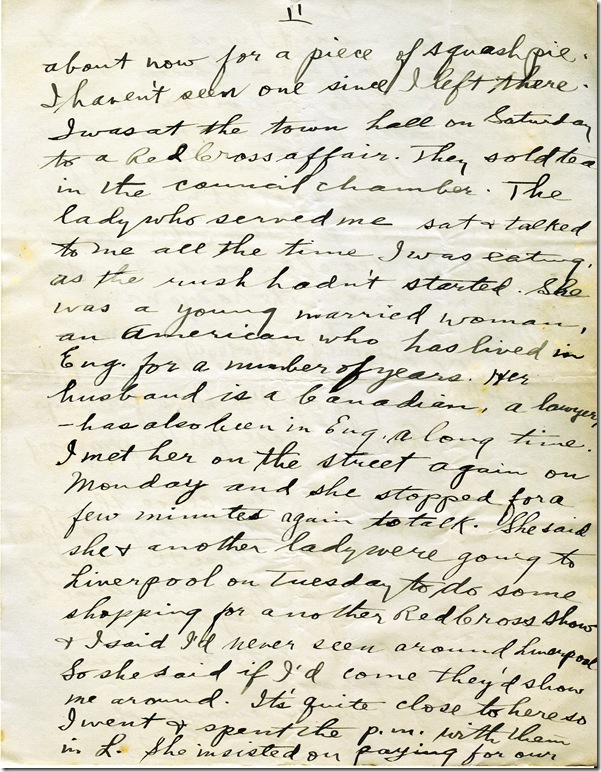 11
about now for a piece of squash pie.
I haven't seen one since I left there.
I was at the town hall on Saturday
to a Red Cross affair. They sold tea
in the council chamber. The
lady who served me sat & talked
to me all the time I was eating,
as the rush hadn't started. She
was a young married woman,
an American who has lived in
Eng. for a number of years. Her
husband is a Canadian, a lawyer,
- has also been in Eng. a long time.
I met her on the street again on
Monday and she stopped for a
few minutes again to talk. She said
she & another lady were going to
Liverpool on Tuesday to do some
shopping for another Red Cross show
& I said I'd never seen around Liverpool
So she said if I'd come they'd show
me around. It's quite close to here so
I went & spent the p.m. with them
in L. She insisted on paying for our